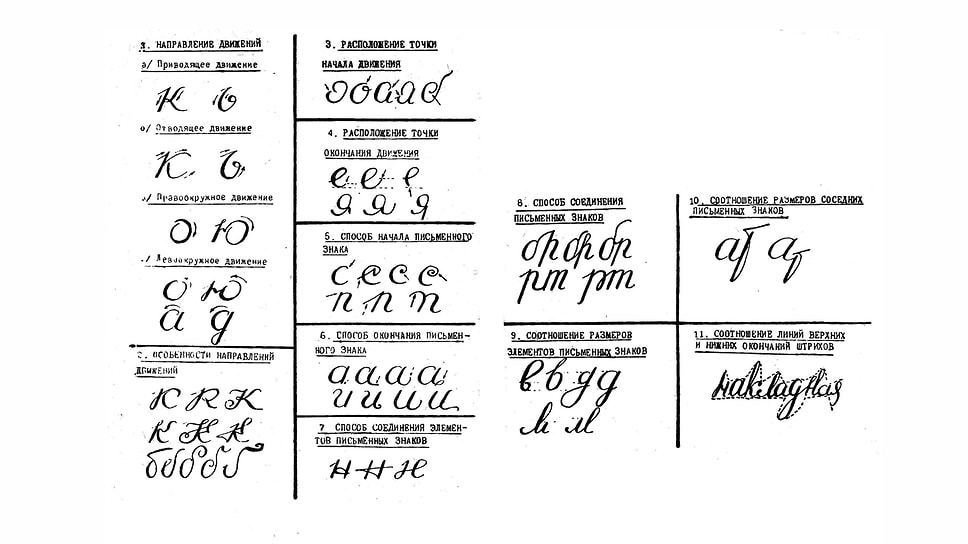 1. НАПРАВЛЕНИЕ ДВИЖЕНИЙ
а/ Приводящее движение
К Ь
б/ Отводящее движение
К Ь
в/ Правоокружное движение
О Ю
г/ Левоокружное движение
О Ю
а д
2. ОСОБЕННОСТИ НАПРАВЛЕНИЙ
ДВИЖЕНИЙ
К К К
К К К
б б б б б
3. РАСПОЛОЖЕНИЕ ТОЧКИ
НАЧАЛА ДВИЖЕНИЯ
о о а а а
4. РАСПОЛОЖЕНИЕ ТОЧКИ
ОКОНЧАНИЯ ДВИЖЕНИЯ
е е е
я я я
5. СПОСОБ НАЧАЛА ПИСЬМЕННОГО
ЗНАКА
с с с с
п п т
6. СПОСОБ ОКОНЧАНИЯ ПИСЬМЕН-
НОГО ЗНАКА
а а а а
и и и и
7 СПОСОБ СОЕДИНЕНИЯ ЭЛЕМЕН-
ТОВ ПИСЬМЕННЫХ ЗНАКОВ
н н н
8. СПОСОБ СОЕДИНЕНИЯ
ПИСЬМЕННЫХ ЗНАКОВ
ор ор ор
рт рт
9. СООТНОШЕНИЕ РАЗМЕРОВ
ЭЛЕМЕНТОВ ПИСЬМЕННЫХ ЗНАКОВ
в в д д
м м
10. СООТНОШЕНИЕ РАЗМЕРОВ СОСЕДНИХ
ПИСЬМЕННЫХ ЗНАКОВ
ат ат
11. СООТНОШЕНИЕ ЛИНИЙ ВЕРХНИХ
И НИЖНИХ ОКОНЧАНИЙ ШТРИХОВ
накладная